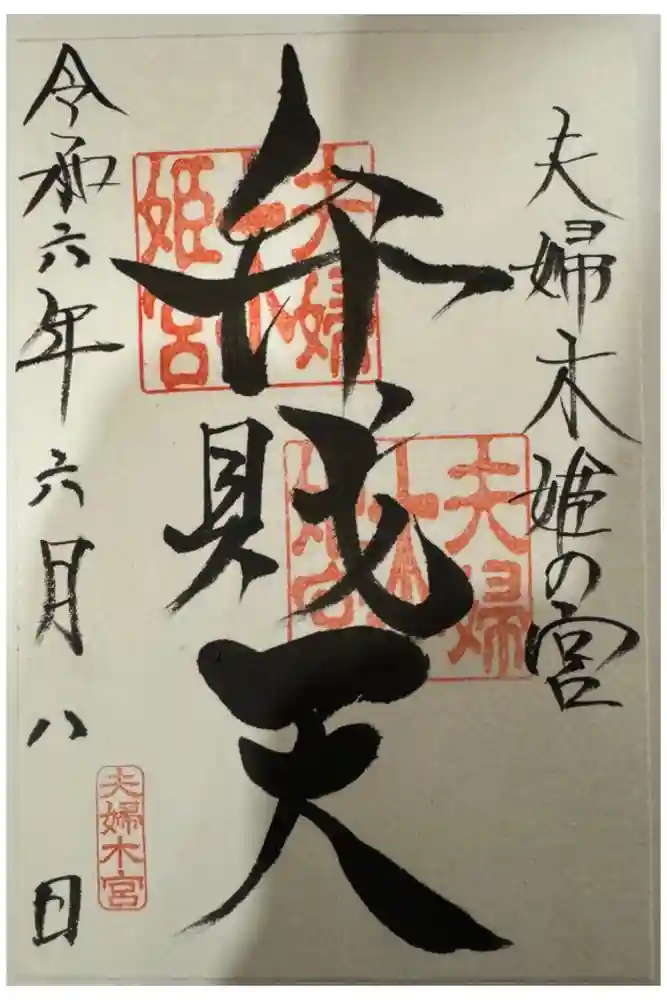 夫婦木姫の宮
弁財天
令和六年六月八日
夫婦
木
姫宮
夫婦
木
姫宮
夫婦木宮